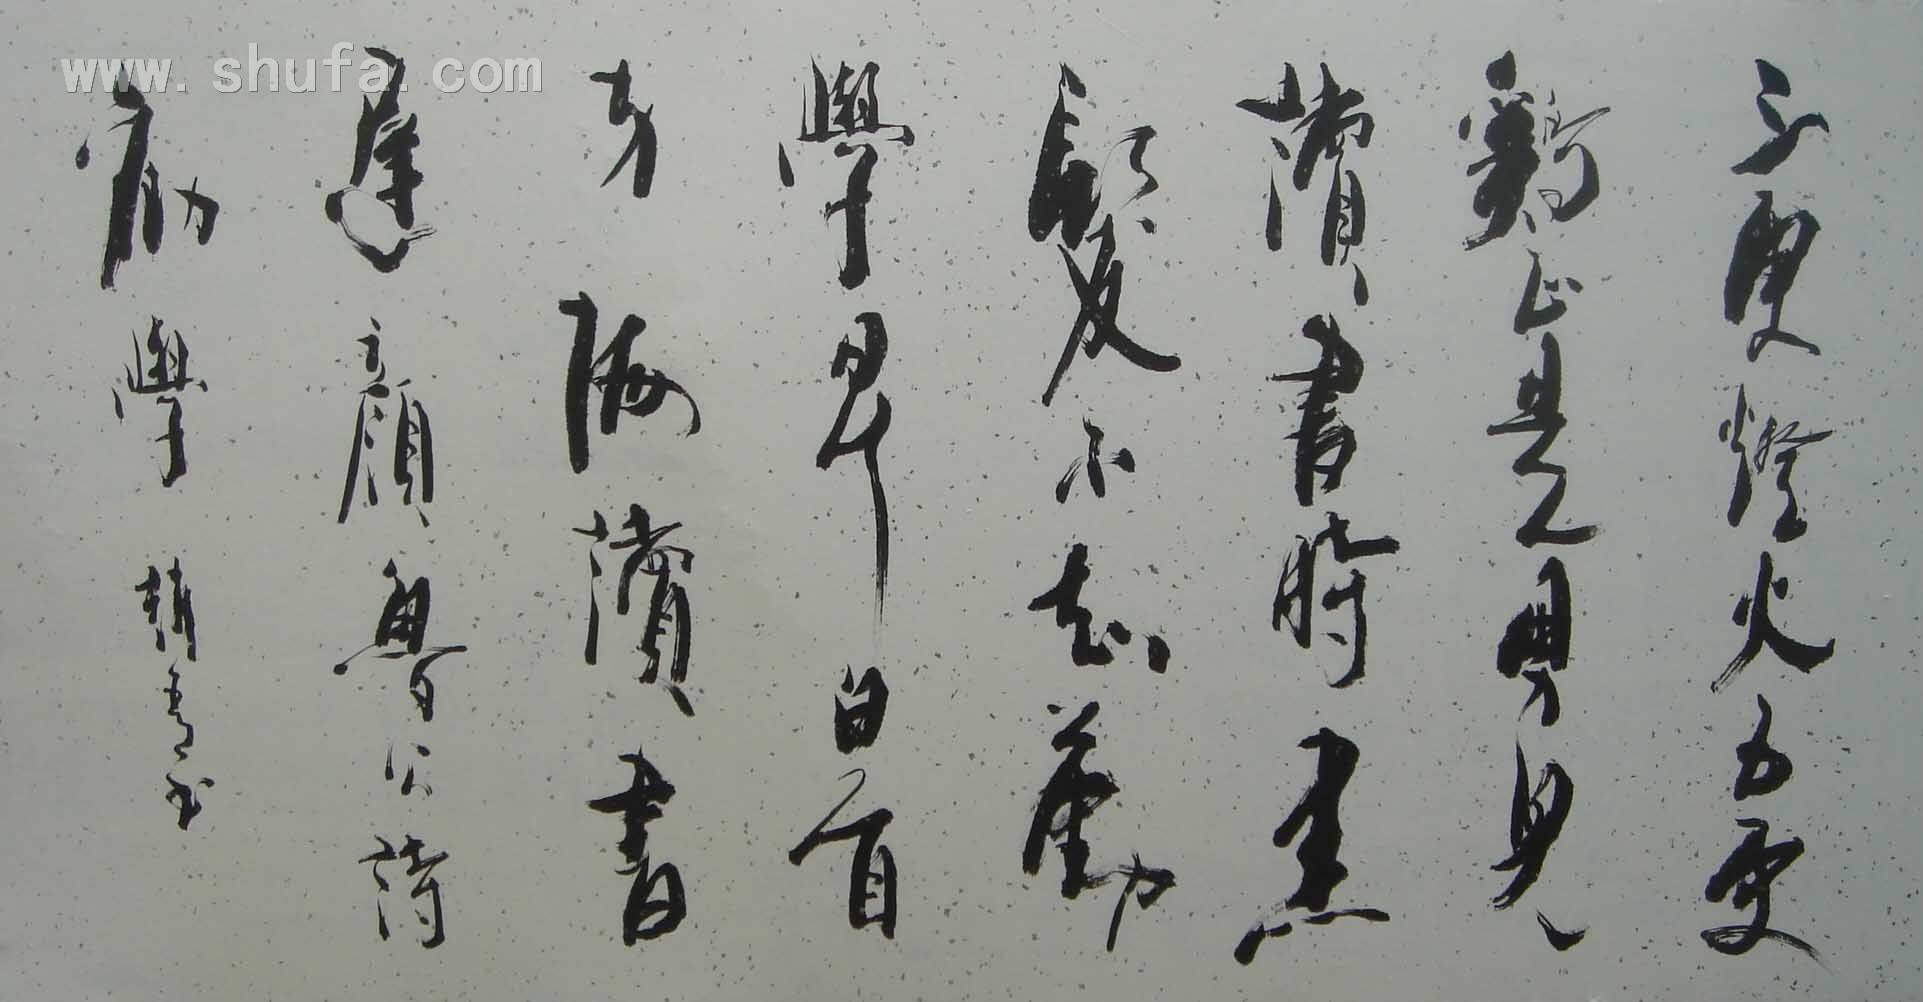 www.shufa.com
三更燈火五更
鷄正是男兒
讀書時黑
髮不知勤
學早白首
方悔讀書
遲 顏魯公詩
勸學